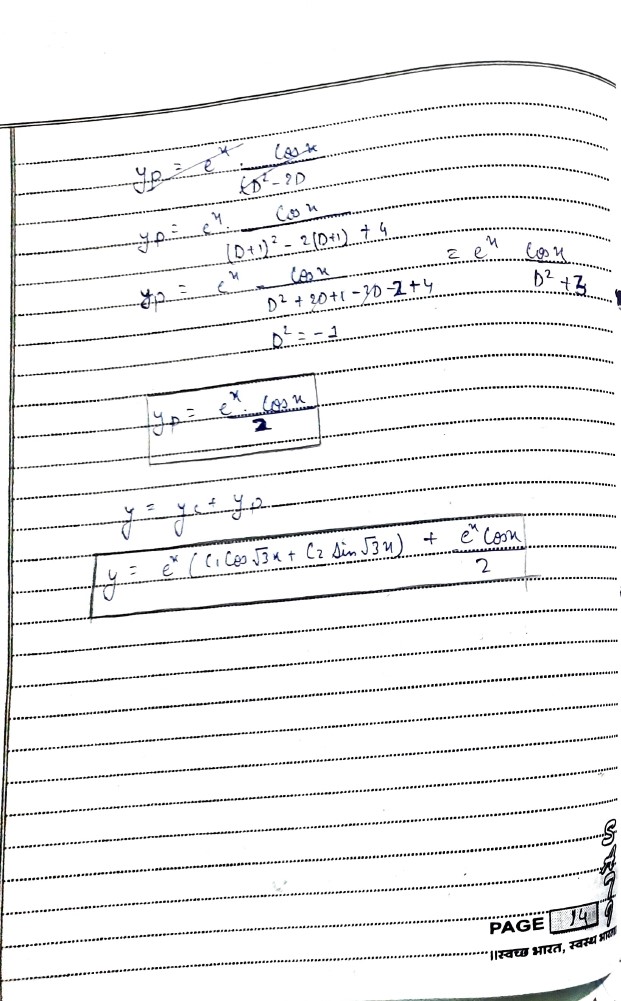 yp = e^x . cosx / (D²-2D
yp = e^x . cosx / (D+1)² - 2(D+1) + 4
yp = e^x cosx / D² + 2D+1 - 2D - 2 + 4 = e^x cosx / D² + 3
D² = -1
yp = e^x . cosx / 2
y = yc + yp
y = e^x (C1 cos √3x + C2 sin √3x) + e^x cosx / 2
PAGE 14
॥स्वच्छ भारत, स्वस्थ भारत